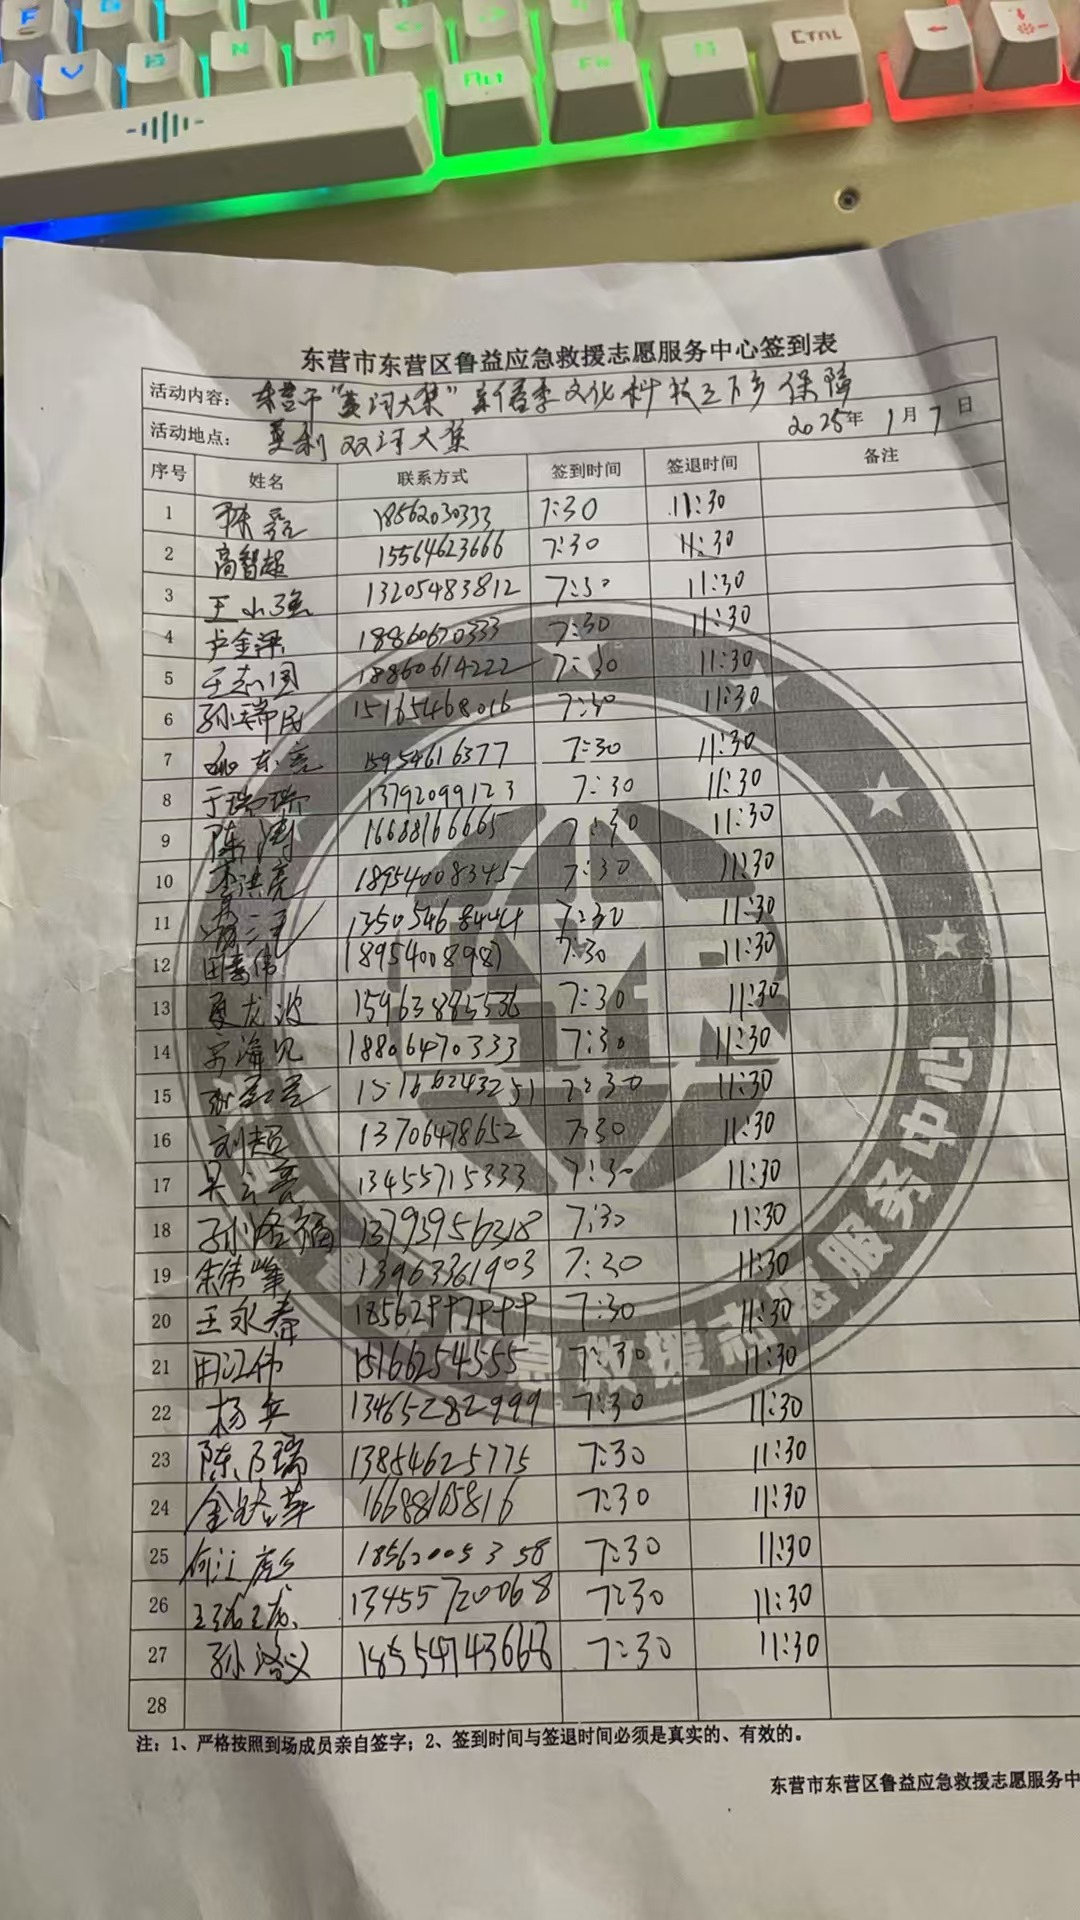 F
V
B
N
M
<
ALT
FN
CTRL
东营市东营区鲁益应急救援志愿服务中心签到表
活动内容：东营市“黄河大集”新春季文化科技三下乡保障
活动地点：垦利双河大集 2025年1月7日
序号 姓名 联系方式 签到时间 签退时间 备注
1 18562030333 7:30 11:30
2 高智超 15564623666 7:30 11:30
3 王小强 13205483812 7:30 11:30
4 卢金梁 18860670333 7:30 11:30
5 王志国 18860614222 7:30 11:30
6 孙瑞民 15165468016 7:30 11:30
7 15954616377 7:30 11:30
8 于瑞瑞 13792099123 7:30 11:30
9 陈涛 16688166665 7:30 11:30
10 李洪亮 18954008345 7:30 11:30
11 13505468444 7:30 11:30
12 田春伟 18954008981 7:30 11:30
13 夏龙波 15963885536 7:30 11:30
14 18806470333 7:30 11:30
15 15166243251 7:30 11:30
16 刘超 13706478652 7:30 11:30
17 吴云亮 13455715333 7:30 11:30
18 13795956318 7:30 11:30
19 朱伟峰 13963361903 7:30 11:30
20 王永春 7:30 11:30
21 田江伟 15166254555 7:30 11:30
22 杨兵 13465282999 7:30 11:30
23 陈乃瑞 13854625775 7:30 11:30
24 16688165816 7:30 11:30
25 18562005358 7:30 11:30
26 13455720068 7:30 11:30
27 孙洛义 18554743668 7:30 11:30
28
注：1、严格按照到场成员亲自签字；2、签到时间与签退时间必须是真实的、有效的。
东营市东营区鲁益应急救援志愿服务中
急救援志愿服务中心